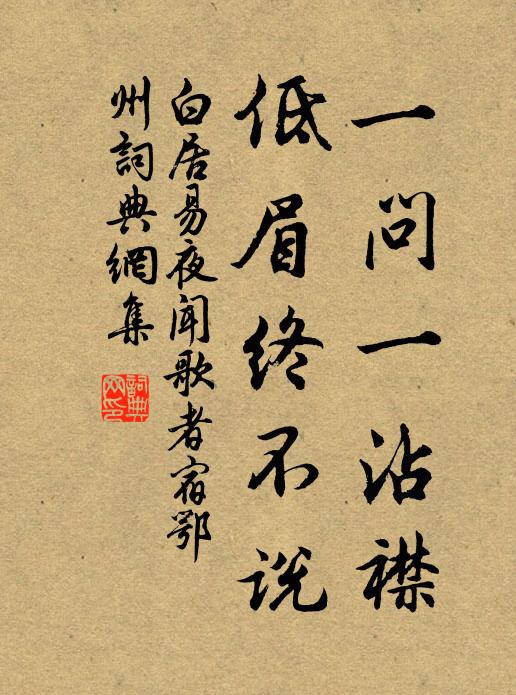 一问一沾襟
低眉终不说
白居易夜闻歌者宿鄂
州詞典網集
詞典
网印